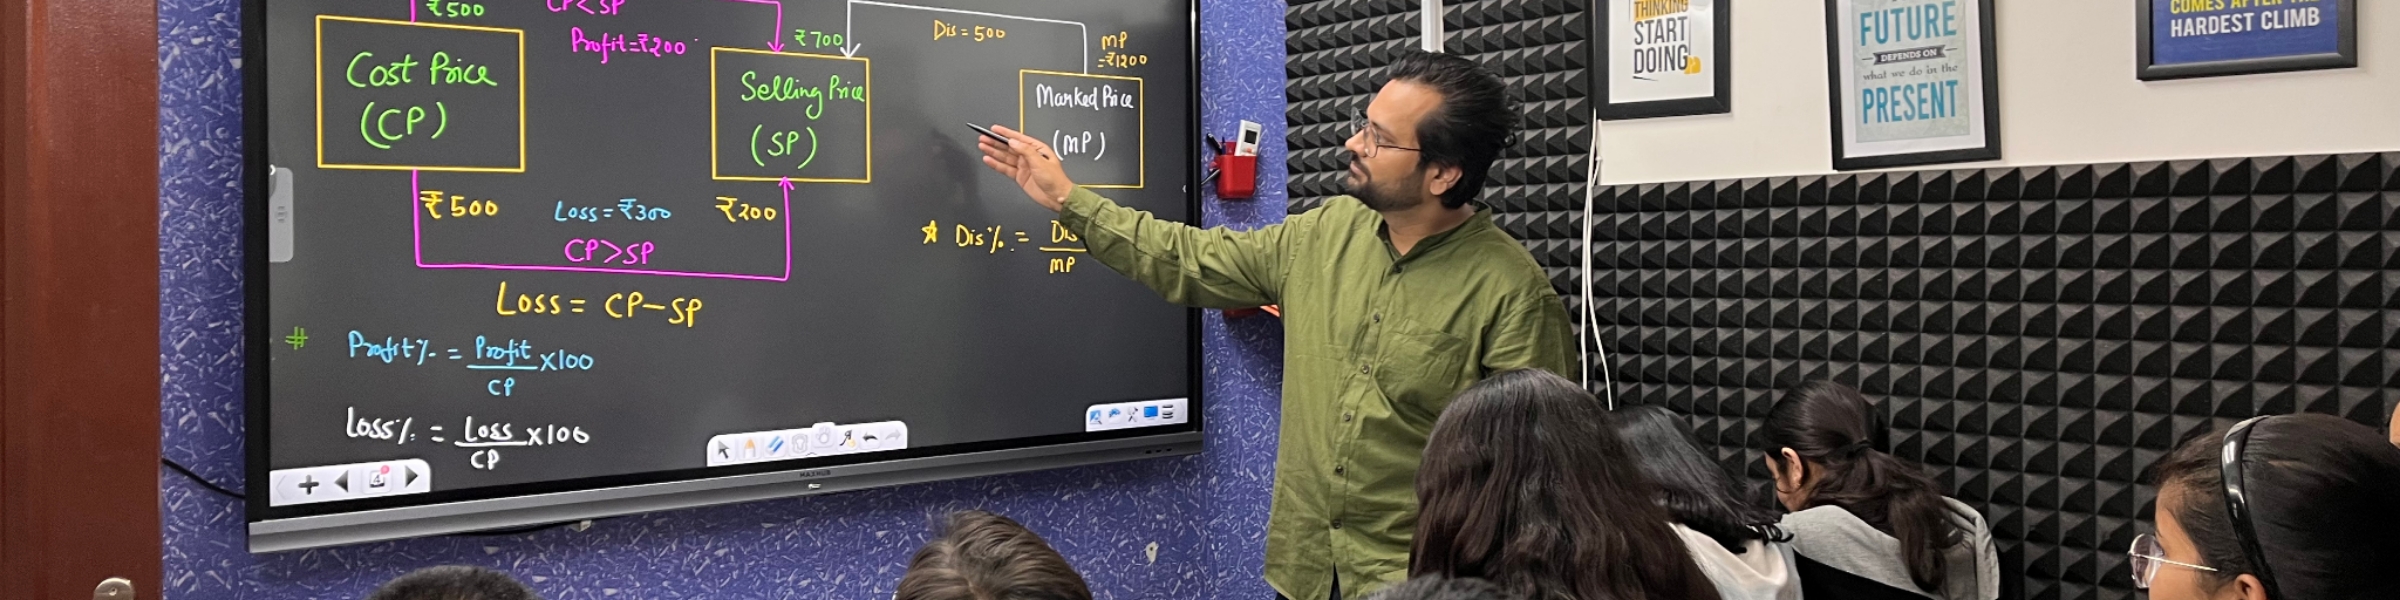 ₹500
CP<SP
Profit=₹200
₹700
Dis = 500
MP
=₹1200
Cost Price
(CP)
Selling Price
(SP)
Marked Price
(MP)
₹500
Loss=₹300
₹200
CP>SP
Loss = CP-SP
Dis%. = Dis
MP
# Profit% = Profit x100
CP
Loss% = Loss x100
CP
4
MAXHUB
THINKING
START
DOING
FUTURE
DEPENDS ON
what we do in the
PRESENT
COMES AFTER THE
HARDEST CLIMB